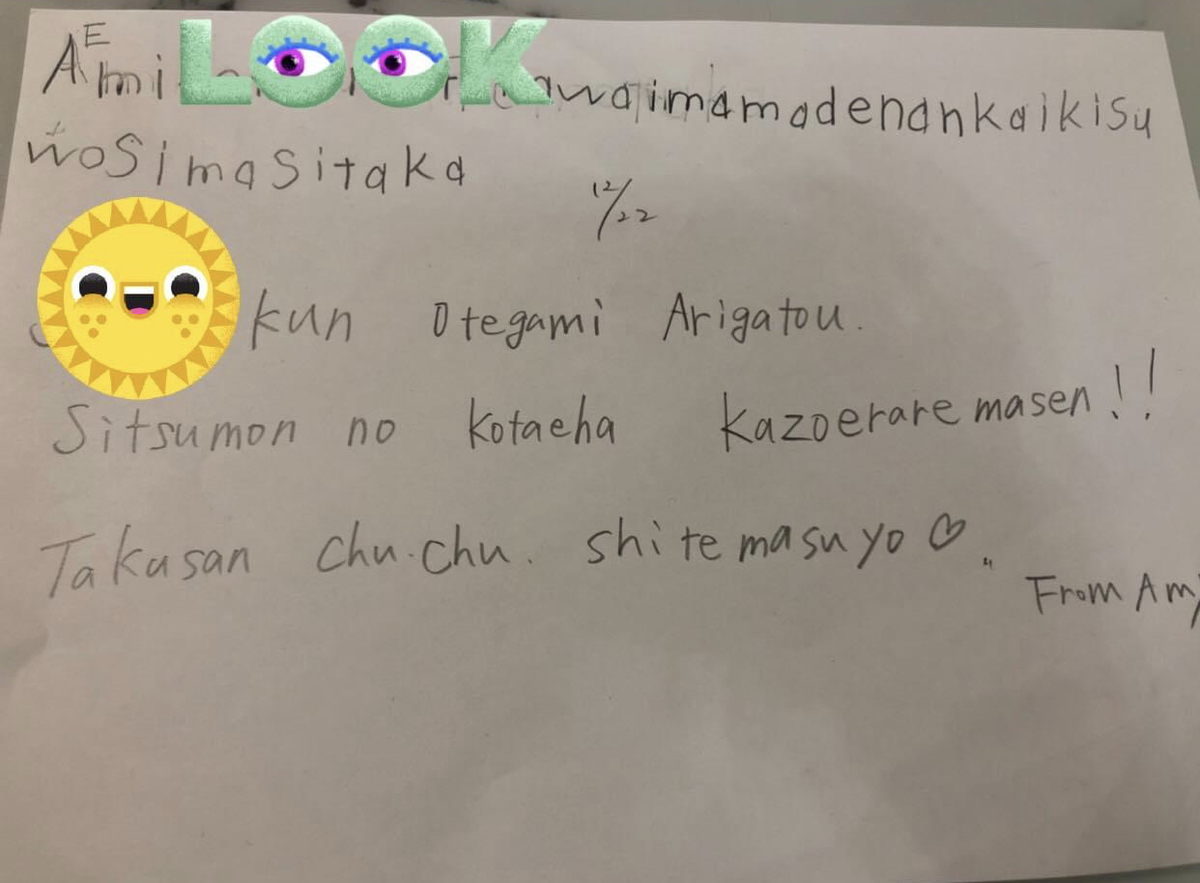 AEmi LOOK waimamadenankaikisu
woSimaSitaka
12/22
kun Otegami Arigatou.
Sitsumon no kotaeha kazoeraremasen!!
Takusan chu・chu. shitemasuyo♡
From Amy